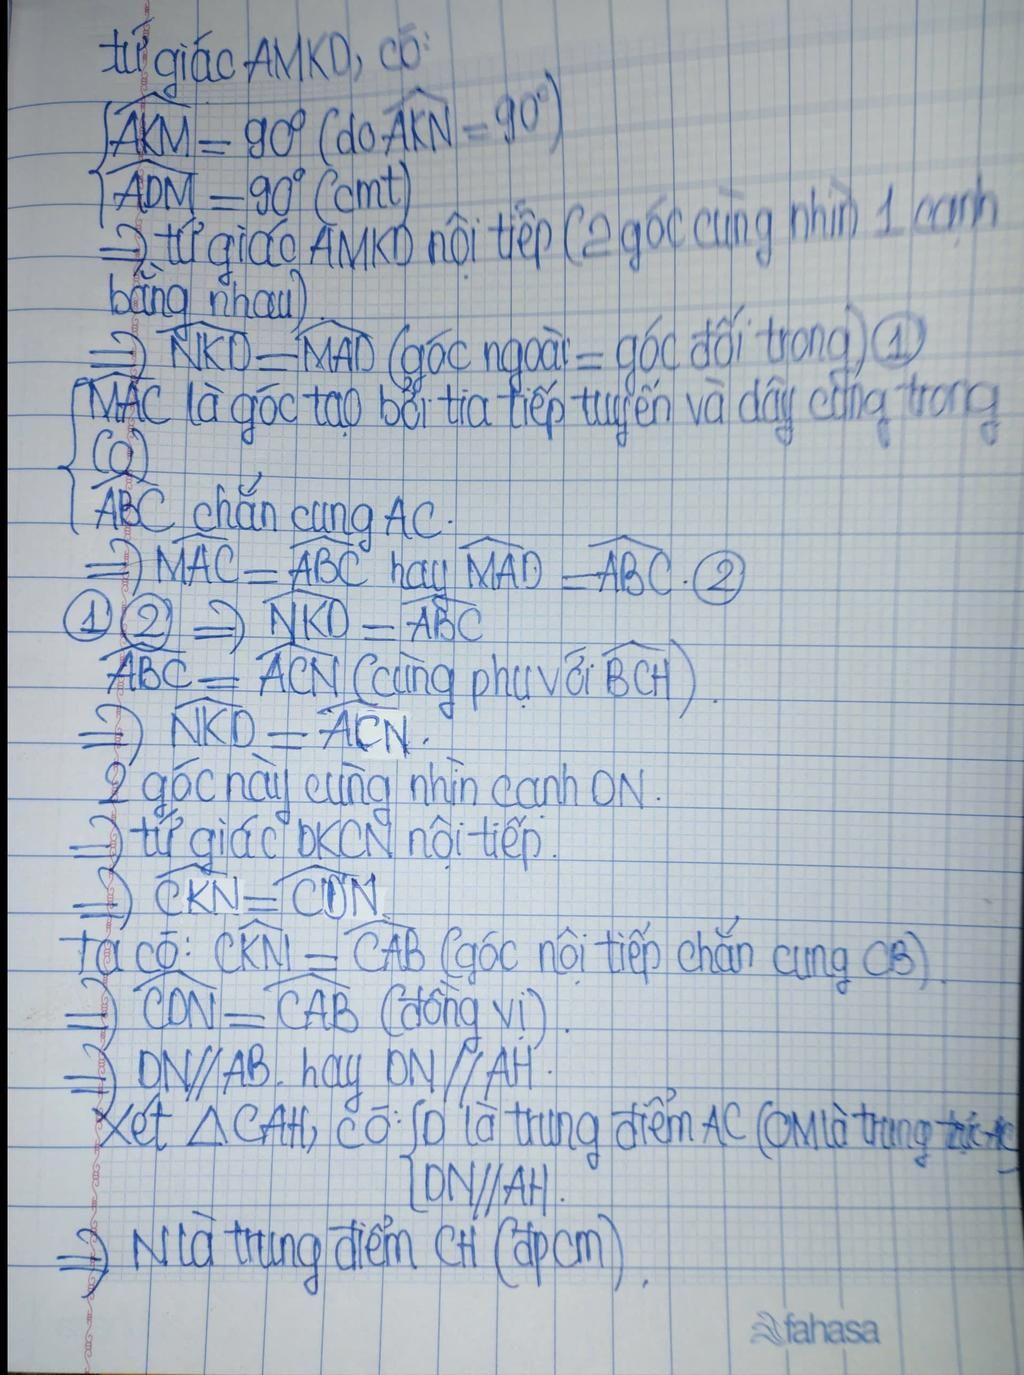 tứ giác AMKD, có:
AKM = 90° (do AKN = 90°)
ADM = 90° (cmt)
=> tứ giác AMKD nội tiếp (2 góc cùng nhìn 1 cạnh
bằng nhau).
=> NKD = MAD (góc ngoài = góc đối trong) ①
MAC là góc tạo bởi tia tiếp tuyến và dây cung trong
(O)
ABC chắn cung AC.
=> MAC = ABC hay MAD = ABC. ②
① ② => NKD = ABC
ABC = ACN (cùng phụ với BCH).
=> NKD = ACN.
2 góc này cùng nhìn cạnh DN.
=> tứ giác DKCN nội tiếp.
=> CKN = CDN
Ta có: CKN = CAB (góc nội tiếp chắn cung CB)
=> CDN = CAB (đồng vị).
=> DN//AB. hay DN//AH.
Xét △CAH, có: D là trung điểm AC (OM là trung trực AC)
DN//AH.
=> N là trung điểm CH (đpcm).
fahasa